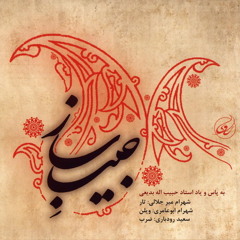 حبیب ساز
به پاس و یاد استاد حبیب اله بدیعی
شهرام میر جلالی: تار
شهرام ابوعامری: ویلن
سعید رودباری: ضرب